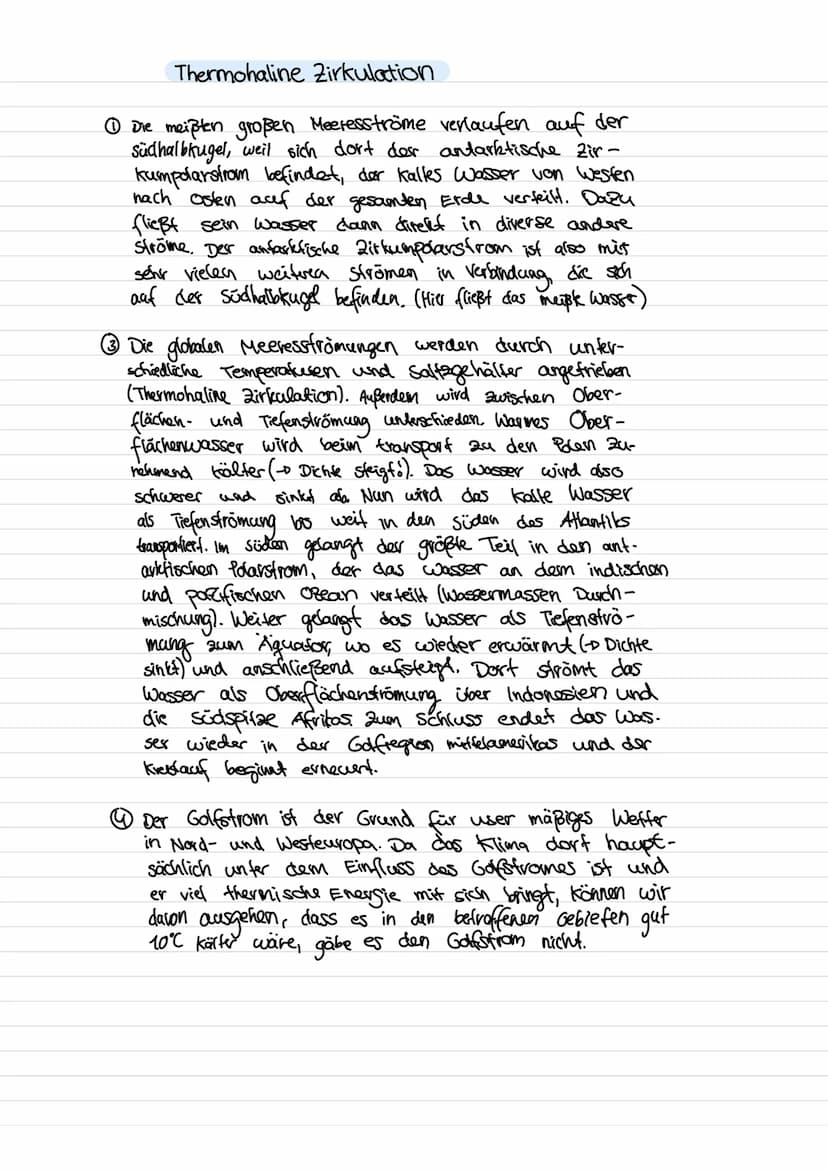 Thermohaline Zirkulation
① Die meißten großen Meeresströme verlaufen auf der
südhalbkugel, weil sich dort der antarktische Zir-
kumpolarstrom befindet, der kaltes Wasser von Westen
nach Osten auf der gesamten Erde verteilt. Dazu
fließt sein Wasser dann direkt in diverse andere
ströme. Der antarktische Zirkumpolarstrom ist also mit
sehr vielen weiteren Strömen in Verbindung, die sich
auf der Südhalbkugel befinden. (Hier fließt das meißte Wasser)
③ Die globalen Meeresströmungen werden durch unter-
schiedliche Temperaturen und Saltzgehälter angetrieben
(Thermohaline Zirkulation). Außerdem wird zwischen Ober-
flächen- und Tiefenströmung unterschieden. Warmes Ober-
flächenwasser wird beim transport zu den Polen zu-
nehmend kälter (→ Dichte steigt!). Das Wasser wird also
schwerer und sinkt ab. Nun wird das kalte Wasser
als Tiefenströmung bis weit in den Süden des Atlantiks
transportiert. Im süden gelangt der größte Teil in den ant-
arktischen Polarstrom, der das Wasser an dem indischen
und pazifischen Ozean verteilt (Wassermassen Durch-
mischung). Weiter gelangt das Wasser als Tiefenströ-
mung zum Äquator, wo es wieder erwärmt (→ Dichte
sinkt) und anschließend aufsteigt. Dort strömt das
Wasser als Oberflächenströmung über Indonesien und
die Südspitze Afrikas. Zum Schluss endet das Was-
ser wieder in der Golfregion mittelamerikas und der
Kreislauf beginnt erneuert.
④ Der Golfstrom ist der Grund für user mäßiges Wetter
in Nord- und Westeuropa. Da das Klima dort haupt-
sächlich unter dem Einfluss des Golfstromes ist und
er viel thermische Energie mit sich bringt, können wir
davon ausgehen, dass es in den betroffenen Gebieten gut
10°C kälter wäre, gäbe es den Golfstrom nicht.